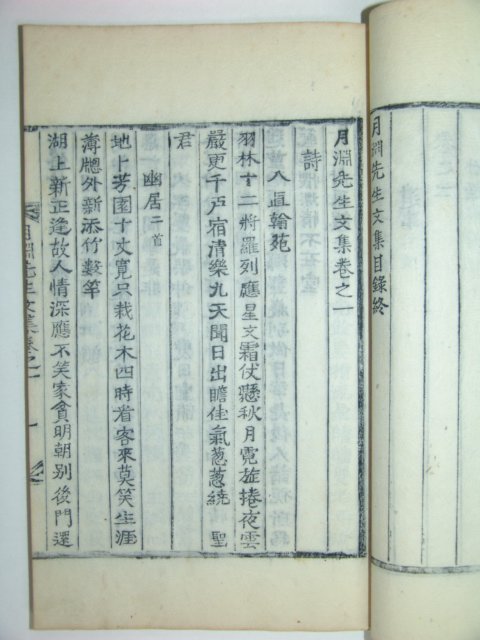 月淵先生文集目錄終
月淵先生文集卷之一
詩
入直翰苑
羽林十二將羅列應星文霜仗懸秋月霓旌捲夜雲
嚴更千戶宿清樂九天聞日出瞻佳氣葱葱繞 聖
君
幽居二首
地卜芳園十丈寛只栽花木四時看客來莫笑生涯
薄牕外新添竹數竿
湖上新正逢故人情深應不笑家貧明朝別後門還
月淵先生文集卷之一
一